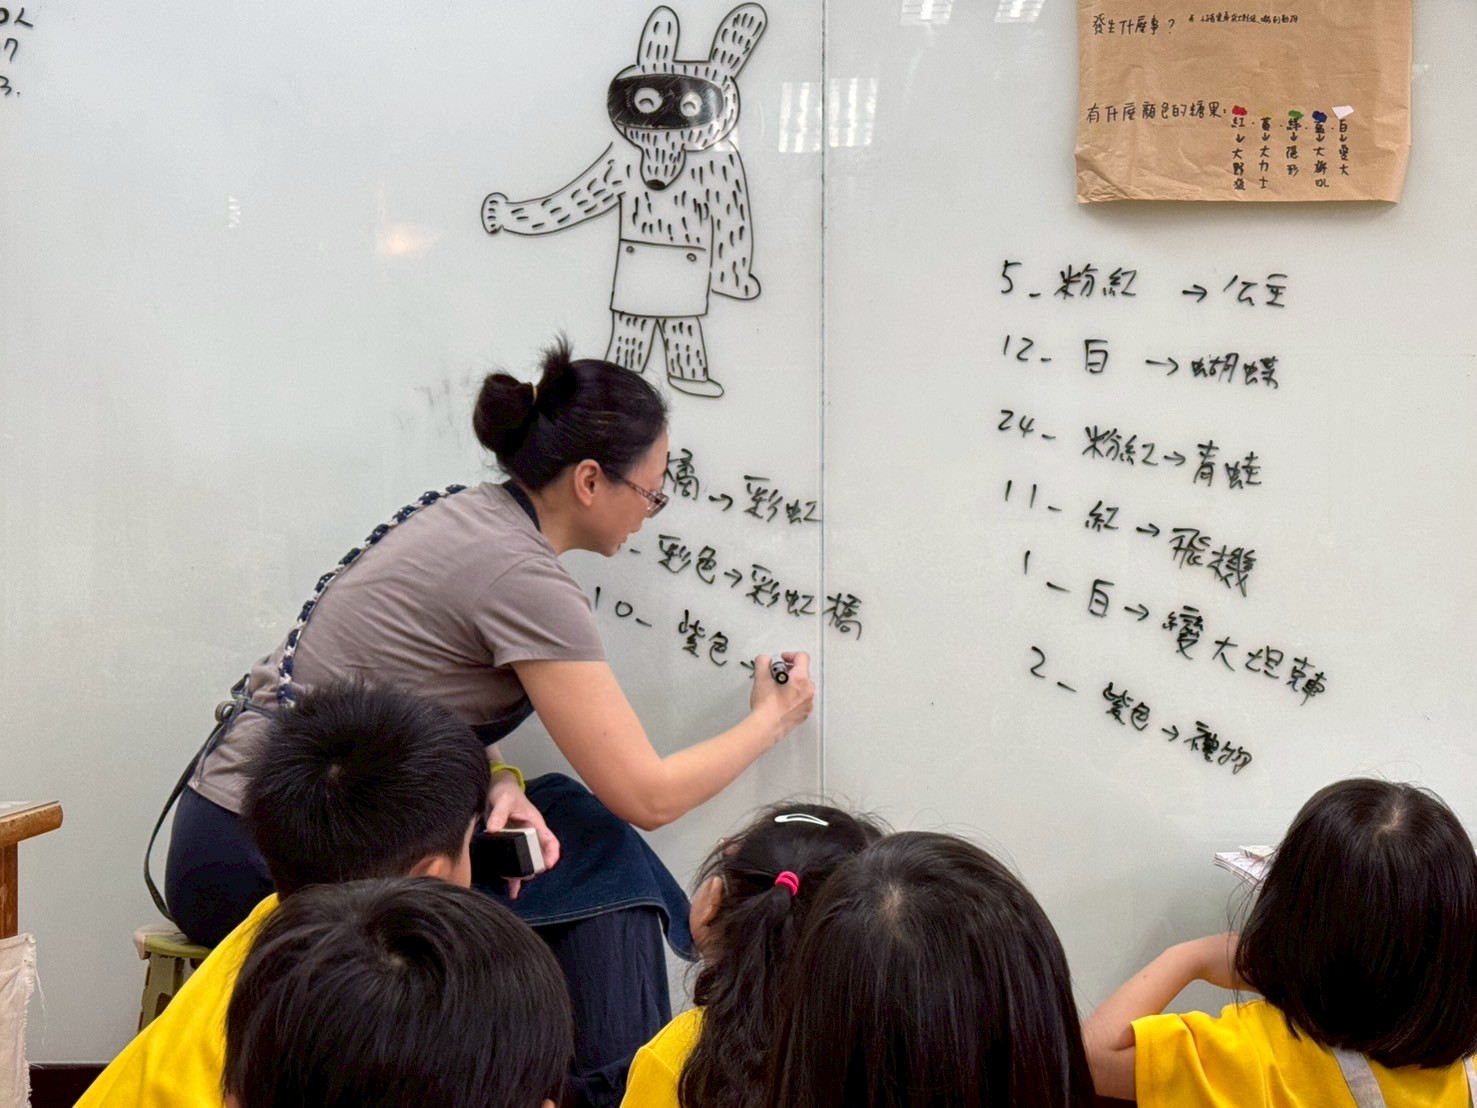 發生什麼事？
有什麼顏色的糖果：
紅→大野狼
黃→大力士
綠→隱形
藍→大
白→變大
5-粉紅→公主
12-白→蝴蝶
24-粉紅→青蛙
11-紅→飛機
1-白→變大坦克車
2-紫色→禮物
橘→彩虹
-彩色→彩虹橋
10-紫色→